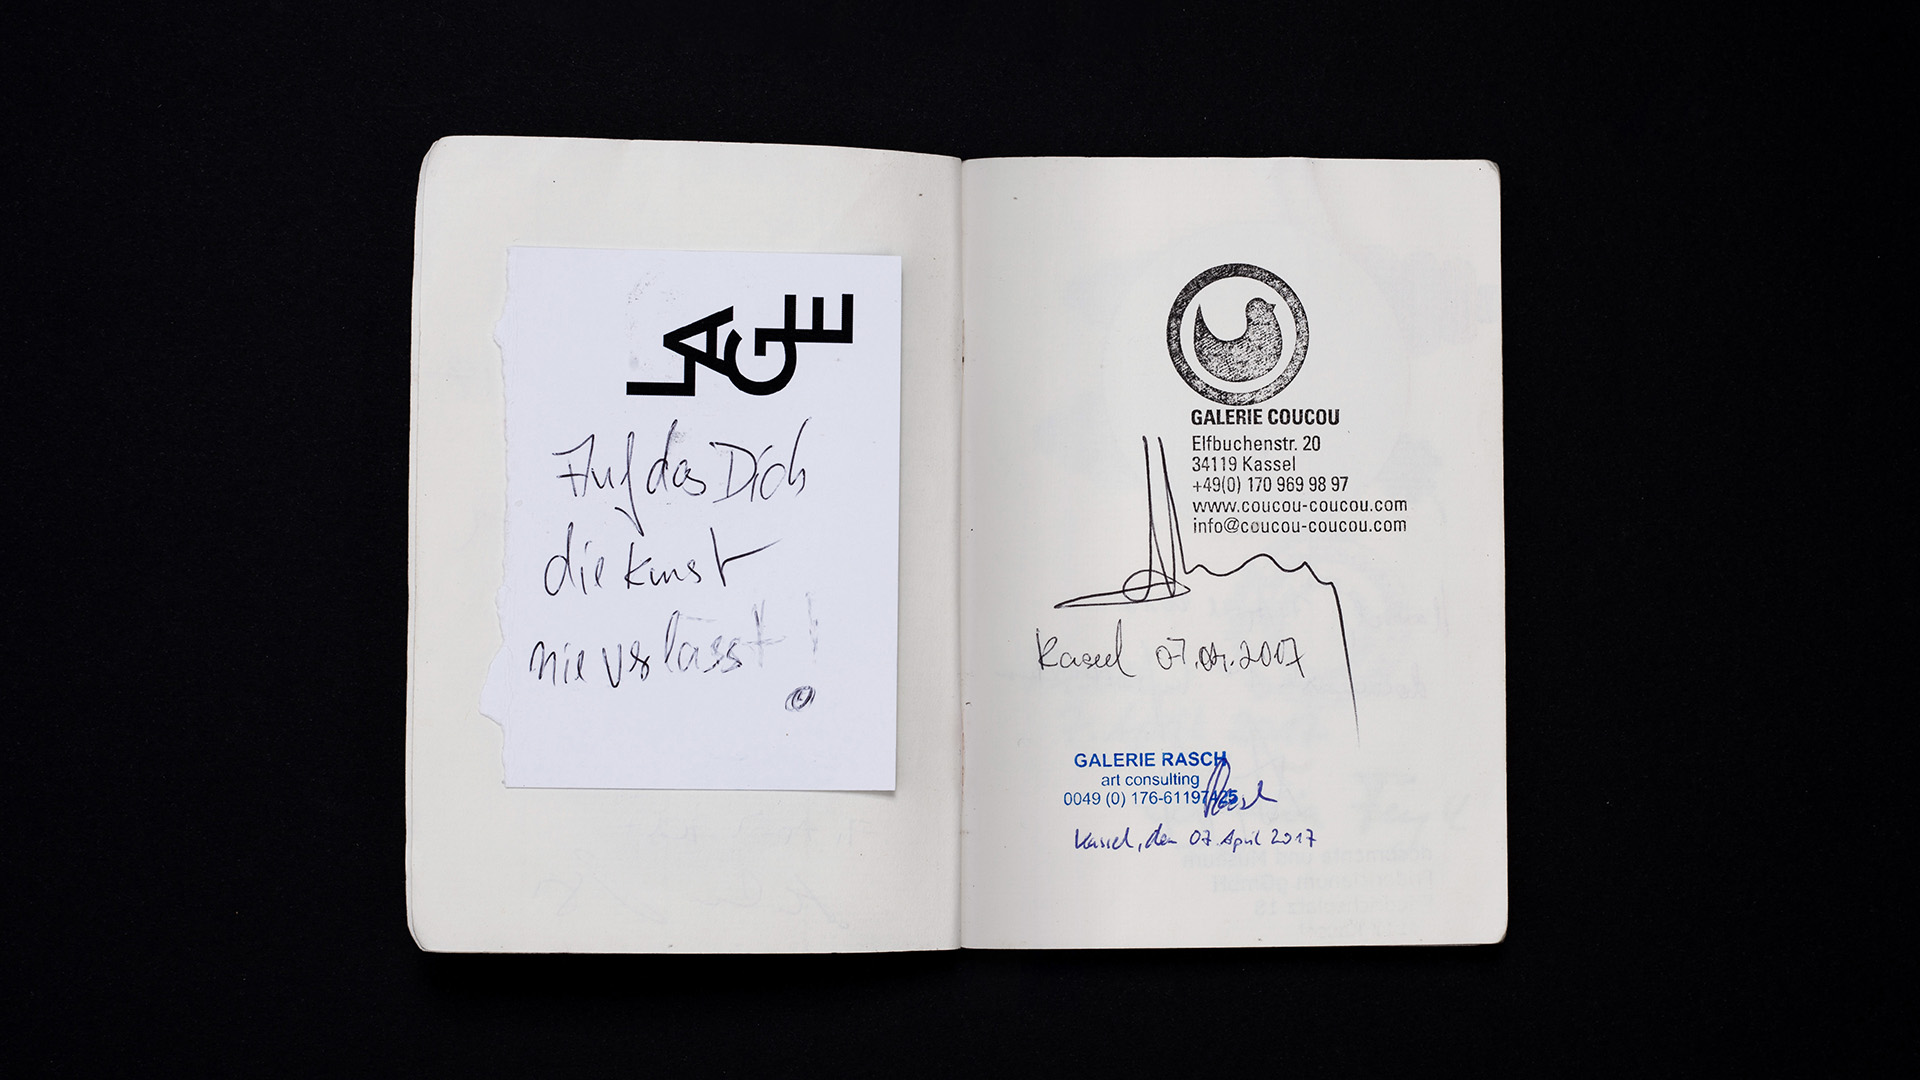 LAGE
Auf das Dich
die Kunst
nie verlässt!
GALERIE COUCOU
Elfbuchenstr. 20
34119 Kassel
+49(0) 170 969 98 97
www.coucou-coucou.com
info@coucou-coucou.com
Kassel 07.04.2017
GALERIE RASCH
art consulting
0049 (0) 176-61197425
Kassel, den 07. April 2017